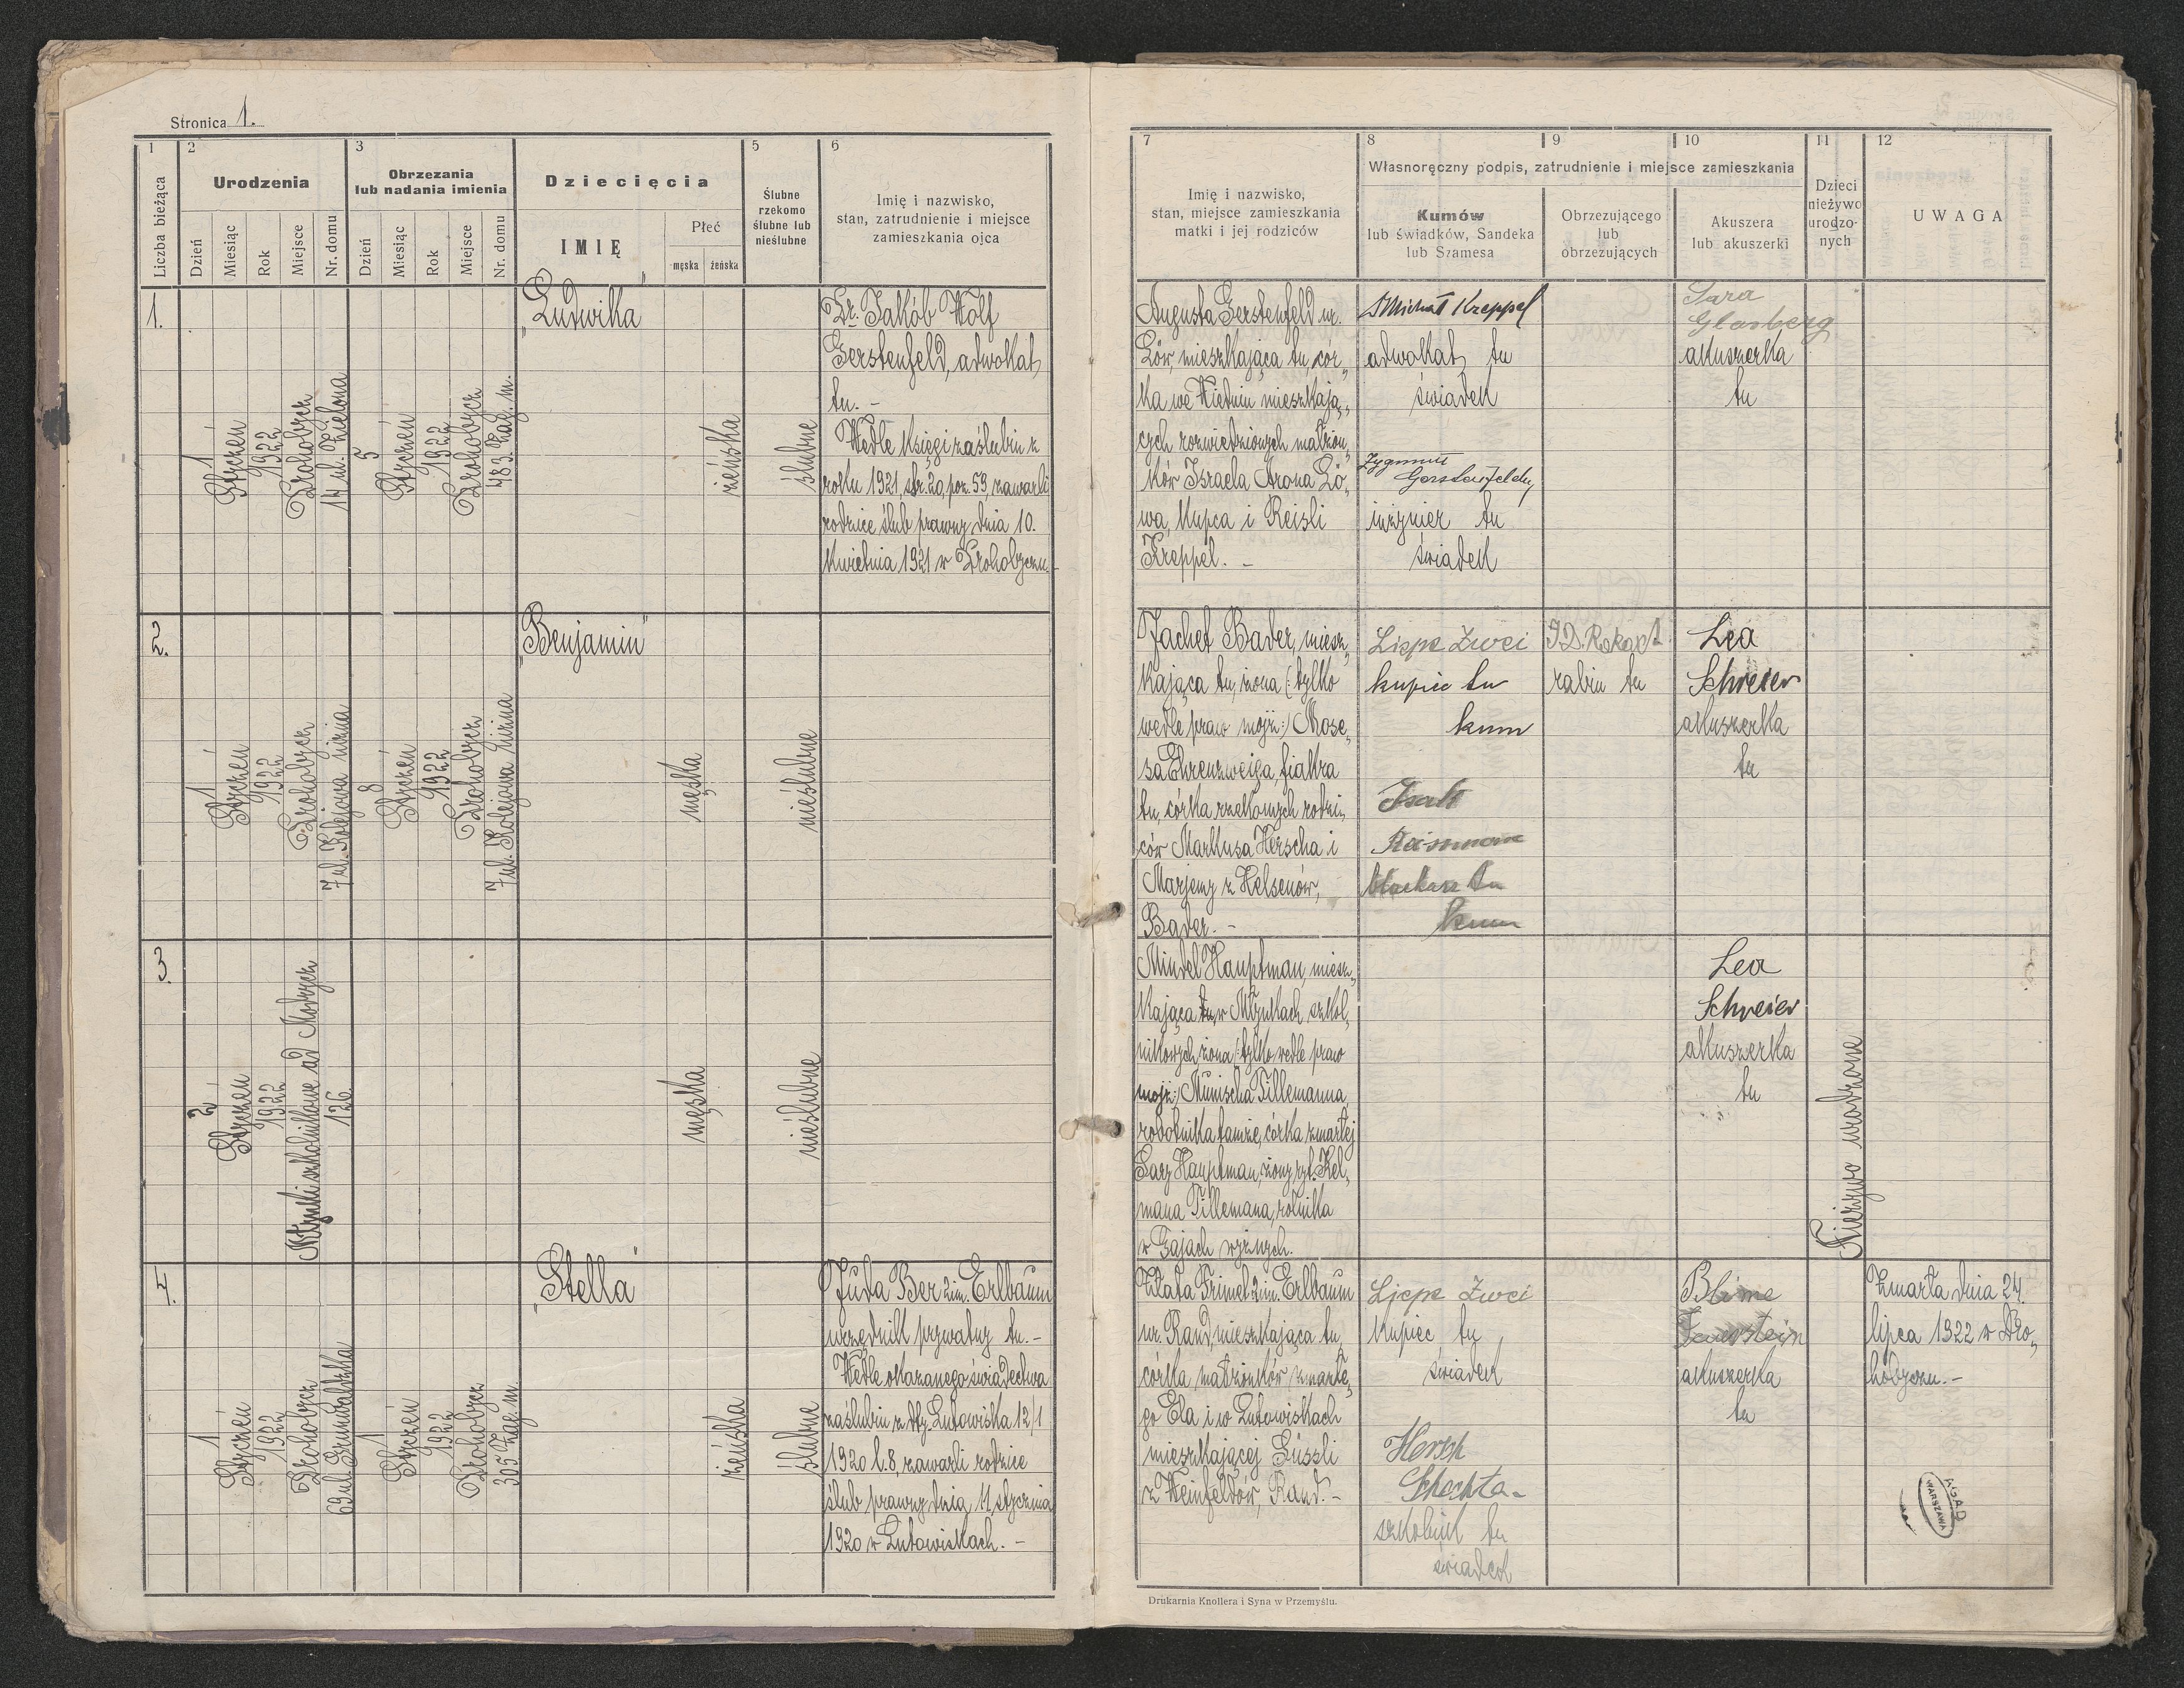 Stronica 1.
1
2
3
5
6
Liczba bieżąca
Urodzenia
Dzień
Miesiąc
Rok
Miejsce
Nr. domu
Obrzezania
lub nadania imienia
Dzień
Miesiąc
Rok
Miejsce
Nr. domu
Dziecięcia
IMIĘ
Płeć
męska
żeńska
Ślubne
rzekomo
ślubne lub
nieślubne
Imię i nazwisko,
stan, zatrudnienie i miejsce
zamieszkania ojca
7
8
9
10
11
12
Imię i nazwisko,
stan, miejsce zamieszkania
matki i jej rodziców
Własnoręczny podpis, zatrudnienie i miejsce zamieszkania
Kumów
lub świadków, Sandeka
lub Szamesa
Obrzezującego
lub
obrzezujących
Akuszera
lub akuszerki
Dzieci
nieżywo
urodzo-
nych
UWAGA
1.
1
Styczeń
1922
Drohobycz
14 ul. Zielona
5
Styczeń
1922
Drohobycz
483. Zag. m.
„Ludwika"
żeńska
ślubne
Dr. Jakób Wolf
Gerstenfeld, adwokat
tu. –
Wedle księgi zaślubin z
roku 1921, str. 20, poz. 59, zawarli
rodzice ślub prawny dnia 10.
kwietnia 1921 w Drohobyczu. –
Augusta Gerstenfeld ur.
Löw, mieszkająca tu, cór„
ka we Wiedniu mieszkają„
cych rozwiedzionych małżon„
ków Israela Arona Lö„
wa, kupca i Reisli
Kreppel. –
Michał Kreppel
adwokat tu
świadek
Zygmunt
Gerstenfeld
inżynier tu
świadek
Sara
Glasberg
akuszerka
tu
2.
1
Styczeń
1922
Drohobycz
7 ul. Kolejowa niżna
8
Styczeń
1922
Drohobycz
7 ul. Kolejowa niżna
„Benjamin"
męska
nieślubne
Jachet Bader, miesz„
kająca tu, żona (: tylko
wedle praw mojż :) Mose„
sa Ehrenzweiga, fiakra
tu, córka rzekomych rodzi„
ców Markusa Herscha i
Marjemy z Helsenów,
Bader. –
Lippe Zwei
kupiec tu
kum
Isak
tu
kum
J.D. Rokach
rabin tu
Lea
Schreier
akuszerka
tu
3.
2
Styczeń
1922
Młynki szkolnikowe ad Modrycz
126.
męska
nieślubne
Mindel Hauptman, miesz„
kająca tu, w Młynkach szkol„
nikowych żona (: tylko wedle praw
mojż :) Munischa Tillemanna,
robotnika tamże, córka zmarłej
Sary Hauptman, żony ryt. Kel„
mana Tillemana, rolnika
w Gajach wyżnych.
Lea
Schreier
akuszerka
tu
Nieżywo urodzone
4.
1
Styczeń
1922
Drohobycz
69 ul. Grunwaldzka
1
Styczeń
1922
Drohobycz
305 Zag. m.
„Stella"
żeńska
ślubne
Juda Ber 2 im. Erlbaum
urzędnik prywatny tu. –
Wedle okazanego świadectwa
zaślubin z dtg. Lutowiska 12/1
1920 l. 8, zawarli rodzice
ślub prawny dnia 11 stycznia
1920 w Lutowiskach. –
Złata Frimet 2 im. Erlbaum
ur. Rand, mieszkająca tu,
córka małżonków zmarłe„
go Ela i w Lutowiskach
mieszkającej Süssli
z Weinfeldów, Rand. –
Lippe Zwei
kupiec tu
świadek
Hersh
Schechter
szkolnik tu
świadek
Blime
Feuerstein
akuszerka
tu
Zmarła dnia 24.
lipca 1922 w Dro„
hobyczu. –
AGAD
WARSZAWA
Drukarnia Knollera i Syna w Przemyślu.